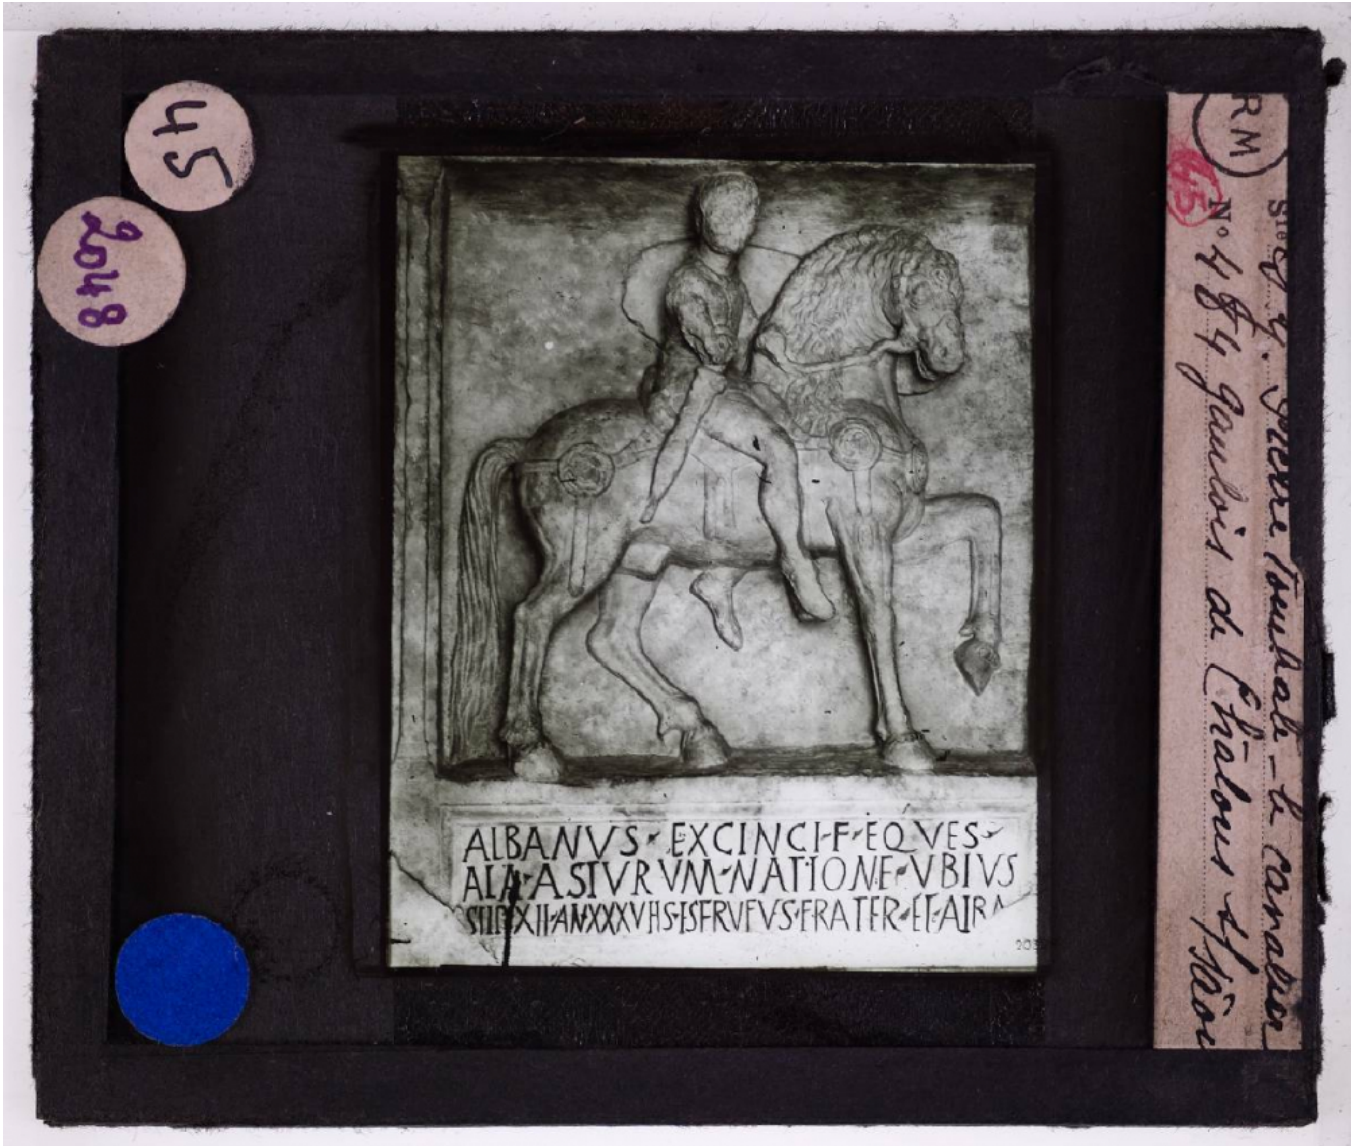 45
2048
RM
45
Sie G. G. Pierre tombale - le cavalier
N° 484 gaulois de Chalons s/ Saône
ALBANVS · EXCINCI · F · EQVES
ALA · ASTVRVM · NATIONE · VBIVS
STIP XII · AN XXXV H S · E S F RVFVS · FRATER · ET · ALBA
203